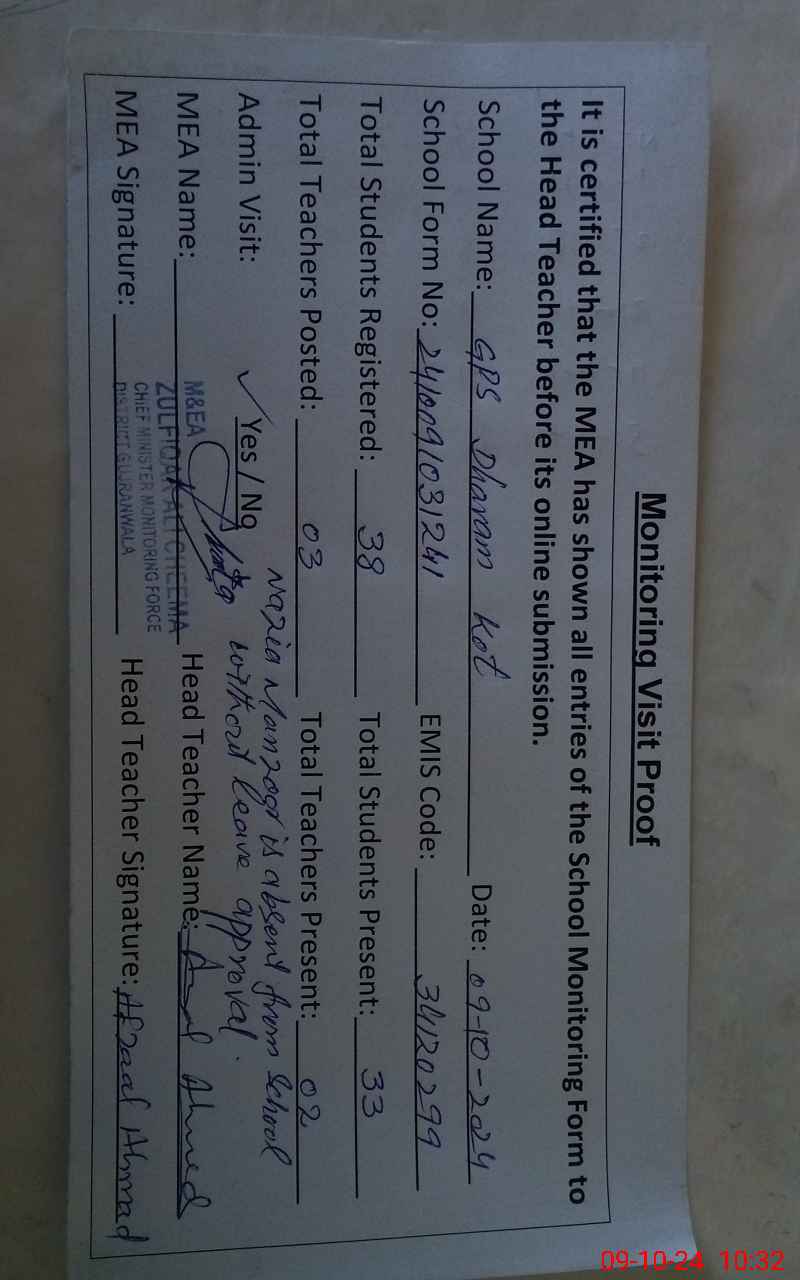 Monitoring Visit Proof
It is certified that the MEA has shown all entries of the School Monitoring Form to
the Head Teacher before its online submission.
School Name: GPS Dharam Kot Date: 09-10-2024
School Form No: 2410091031241 EMIS Code: 34120299
Total Students Registered: 38 Total Students Present: 33
Total Teachers Posted: 03 Total Teachers Present: 02
Nazia Manzoor is absent from School
Admin Visit: ✓ Yes / No without leave approval.
MEA Name: Head Teacher Name: Ahmed
M&EA
ZULFIQAR ALI CHEEMA
CHIEF MINISTER MONITORING FORCE
DISTRICT GUJRANWALA
MEA Signature: Head Teacher Signature: Afzaal Ahmad
09-10-24 10:32